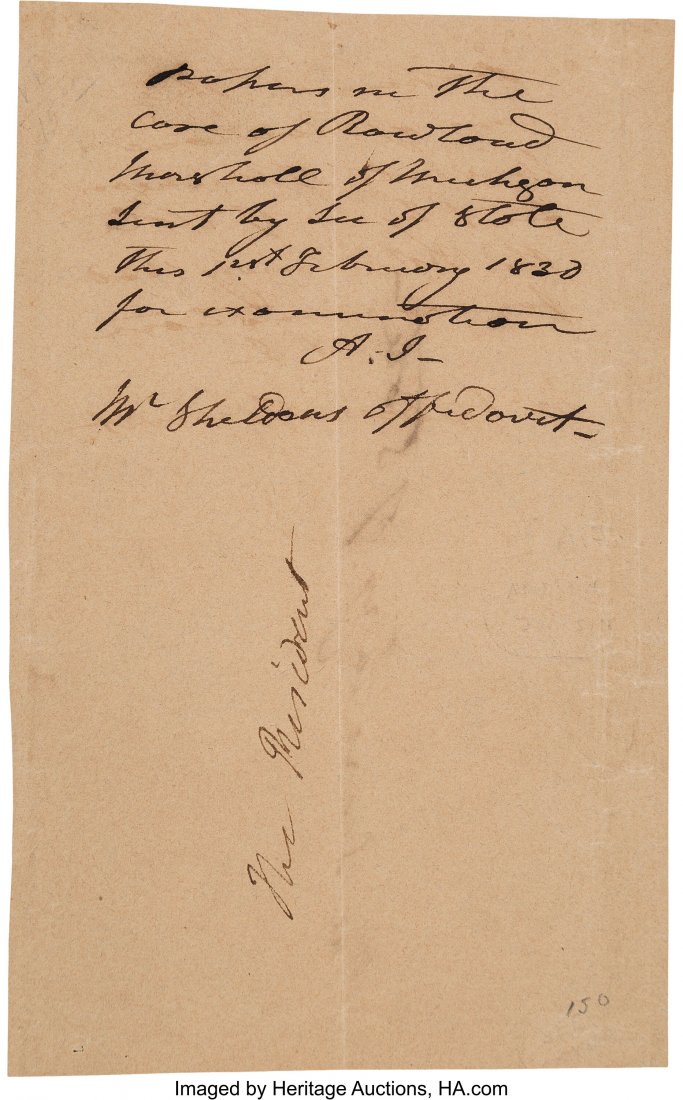 papers in the
case of Rowland
Marshall of Michigan
sent by Sec of State
this 1rst February 1830
for examination
A.J-
Mr Sheldons affidavit-
The President
150
Imaged by Heritage Auctions, HA.com